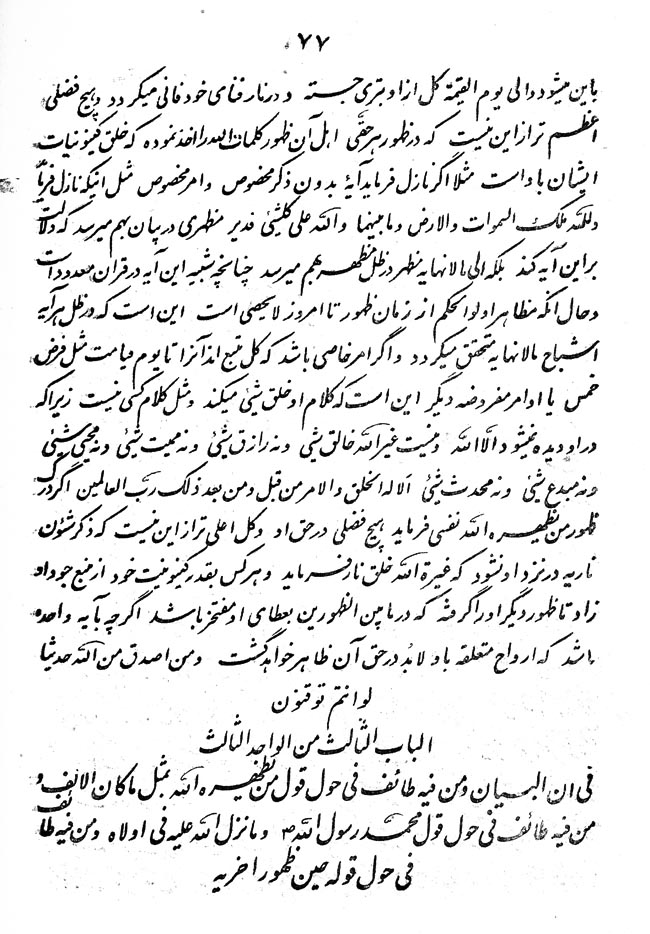 ۷۷
باین میشود والی یوم القیمة کل از او بتری جسته و در نار فنای خود فانی میگردد و هیچ فضلی
اعظم تر از این نیست که در ظهور هر حقی اهل آن ظهور کلمات الله را اخذ نموده که خلق کینونیات
ایشان باو است مثلا اگر نازل فرماید آیهٔ بدون ذکر مخصوص و امر مخصوص مثل اینکه نازل فرماید
و لله ملک السموات والارض وما بینهما والله علی کلشیئ قدیر مظهری در بیان بهم میرسد که دلالت
بر این آیه کند بلکه الی مالانهایه مظهر در ظل مظهر بهم میرسد چنانچه شبیه این آیه در قران معدود است
و حال آنکه مظاهر اولوالحکم از زمان ظهور تا امروز لایحصی است این است که در ظل هر آیه
اشباح مالانهایه متحقق میگردد و اگر امر خاصی باشد که کل متبع اند آنرا تا یوم قیامت مثل فرض
خمس یا اوامر مفروضه دیگر این است که کلام او خلق شیئ میکند و مثل کلام کسی نیست زیرا که
در او دیده نمیشود الا الله و نیست غیر الله خالق شیئ و نه رازق شیئ و نه ممیت شیئ و نه محیی شیئ
و نه مبدع شیئ و نه محدث شیئ الا له الخلق والامر من قبل ومن بعد ذلک رب العالمین اگر در
ظهور من یظهره الله نفسی فرماید هیچ فضلی در حق او و کل اعلی تر از این نیست که ذکر شئون
ناریه در نزد او نشود که غیرة الله خلق نار نفرماید و هر کس بقدر کینونیت خود از منبع جود او
زاد تا ظهور دیگر او را گرفته که در مابین الظهورین بعطای او مفتخر باشد اگر چه بآیه واحده
باشد که ارواح متعلقه باو لابد در حق آن ظاهر خواهد گشت ومن اصدق من الله حدیثا
لو انتم توقنون
الباب الثالث من الواحد الثالث
فی ان البیان ومن فیه طائف فی حول قول من یظهره الله بمثل ما کان الالف و
من فیه طائف فی حول قول محمد رسول الله ص وما نزل الله علیه فی اولاه ومن فیه طائف
فی حول قوله حین ظهور اخریه